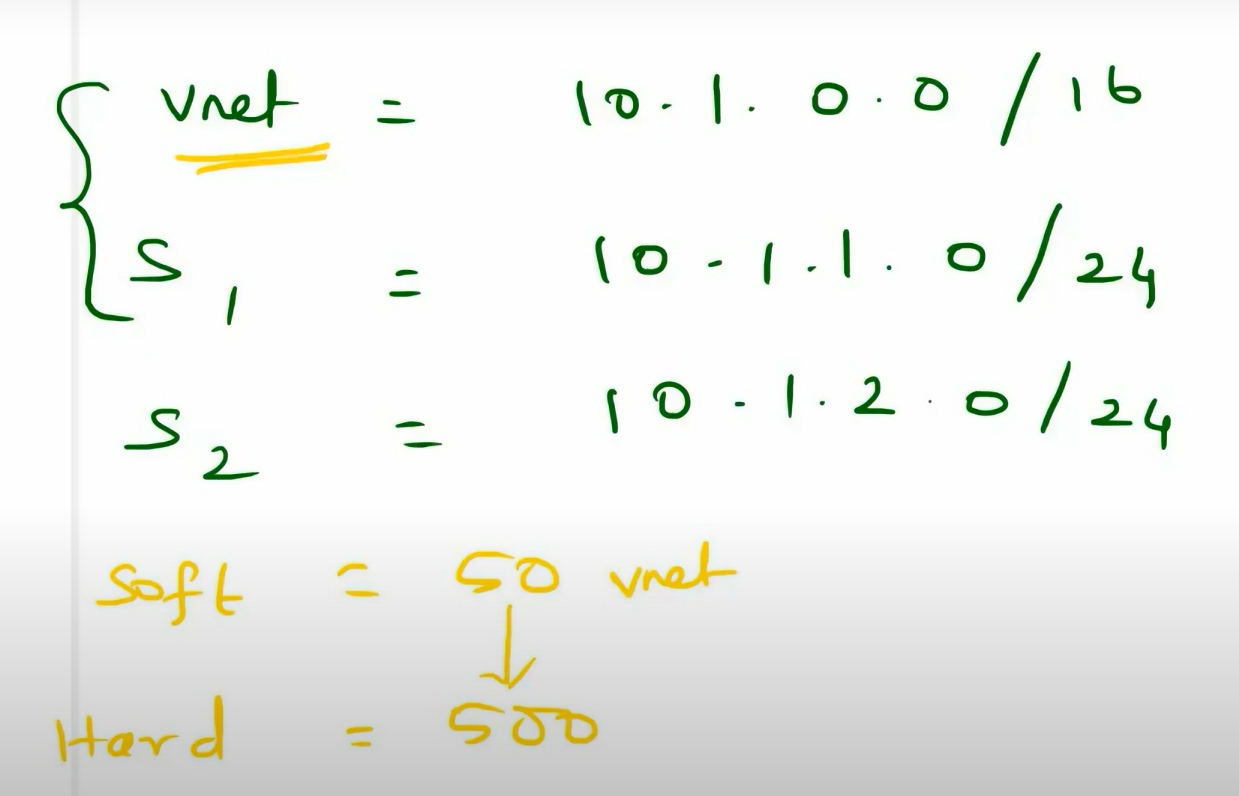 Vnet = 10.1.0.0/16
S1 = 10.1.1.0/24
S2 = 10.1.2.0/24
Soft = 50 vnet
↓
Hard = 500